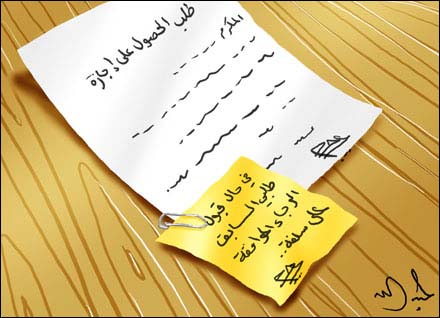 طلب الحصول على إجازة
المكرم
في حال قبول
طلبي السابق
الرجاء الموافقة
على سلفة..